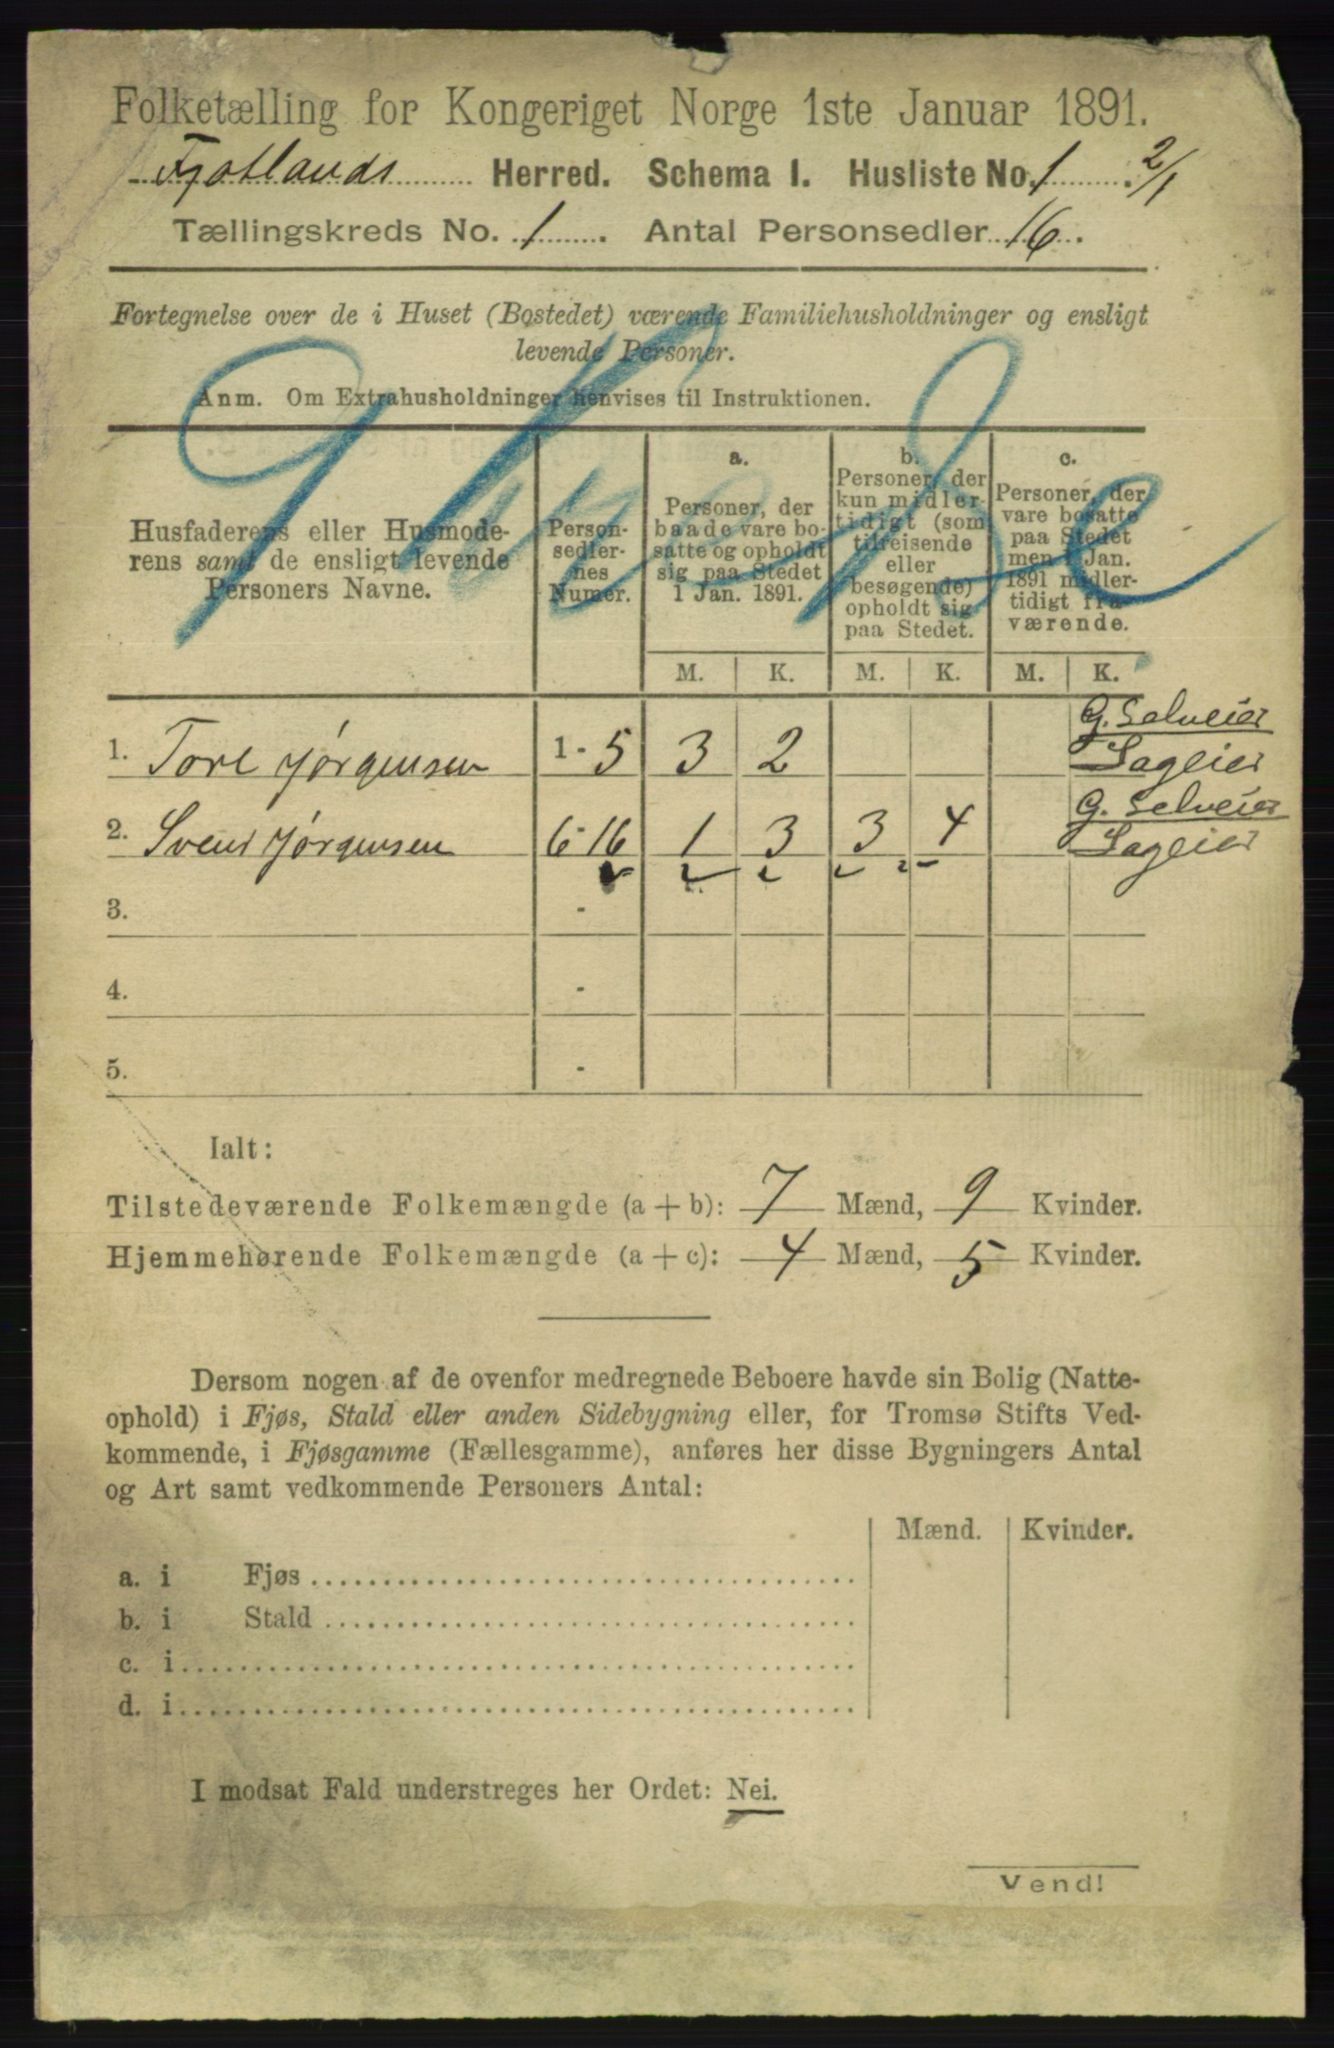 Folketælling for Kongeriget Norge 1ste Januar 1891.
Fjotlands Herred. Schema I. Husliste No. 1. 2/1
Tællingskreds No. 1. Antal Personsedler 16.
Fortegnelse over de i Huset (Bostedet) værende Familiehusholdninger og ensligt
levende Personer.
Anm. Om Extrahusholdninger henvises til Instruktionen.
Husfaderens eller Husmode-
rens samt de ensligt levende
Personers Navne.
Person-
sedler-
nes
Numer.
a.
Personer, der
baade vare bo-
satte og opholdt
sig paa Stedet
1 Jan. 1891.
b.
Personer, der
kun midler-
tidigt (som
tilreisende
eller
besøgende)
opholdt sig
paa Stedet.
c.
Personer, der
vare bosatte
paa Stedet
men 1 Jan.
1891 midler-
tidigt fra-
værende.
M. K. M. K. M. K.
G. Selveier
1. Tore Jørgensen 1 - 5 3 2 Sageier
G. Selveier
2. Svend Jørgensen 6 - 16 1 3 3 4 Sageier
3. -
4. -
5. -
Ialt:
Tilstedeværende Folkemængde (a + b): 7 Mænd, 9 Kvinder.
Hjemmehørende Folkemængde (a + c): 4 Mænd, 5 Kvinder.
Dersom nogen af de ovenfor medregnede Beboere havde sin Bolig (Natte-
ophold) i Fjøs, Stald eller anden Sidebygning eller, for Tromsø Stifts Ved-
kommende, i Fjøsgamme (Fællesgamme), anføres her disse Bygningers Antal
og Art samt vedkommende Personers Antal:
Mænd. Kvinder.
a. i Fjøs
b. i Stald
c. i
d. i
I modsat Fald understreges her Ordet: Nei.
Vend!